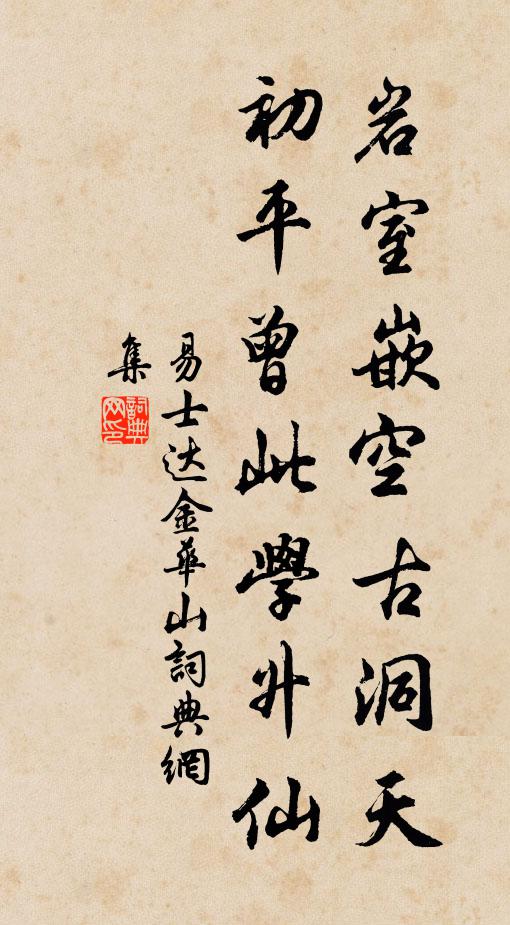 岩室嵌空古洞天
初平曾此學升仙
易士达金華山詞典網
集
詞典网印